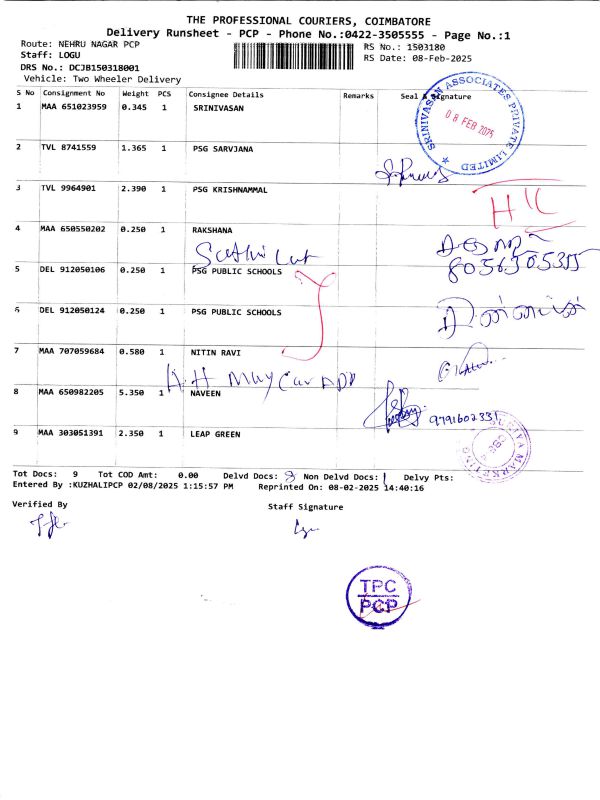 THE PROFESSIONAL COURIERS, COIMBATORE
Delivery Runsheet - PCP - Phone No.:0422-3505555 - Page No.:1
Route: NEHRU NAGAR PCP RS No.: 1503180
Staff: LOGU RS Date: 08-Feb-2025
DRS No.: DCJB150318001
Vehicle: Two Wheeler Delivery
S No Consignment No Weight PCS Consignee Details Remarks Seal & Signature
1 MAA 651023959 0.345 1 SRINIVASAN
SRINIVASAN ASSOCIATES PRIVATE LIMITED
08 FEB 2025
2 TVL 8741559 1.365 1 PSG SARVJANA
3 TVL 9964901 2.390 1 PSG KRISHNAMMAL
4 MAA 650550202 0.250 1 RAKSHANA
8056305355
5 DEL 912050106 0.250 1 PSG PUBLIC SCHOOLS
6 DEL 912050124 0.250 1 PSG PUBLIC SCHOOLS
7 MAA 707059684 0.580 1 NITIN RAVI
8 MAA 650982205 5.350 1 NAVEEN
9791602331
9 MAA 303051391 2.350 1 LEAP GREEN
MARKETING
Tot Docs: 9 Tot COD Amt: 0.00 Delvd Docs: 8 Non Delvd Docs: 1 Delvy Pts:
Entered By :KUZHALIPCP 02/08/2025 1:15:57 PM Reprinted On: 08-02-2025 14:40:16
Verified By Staff Signature
TPC
PCP